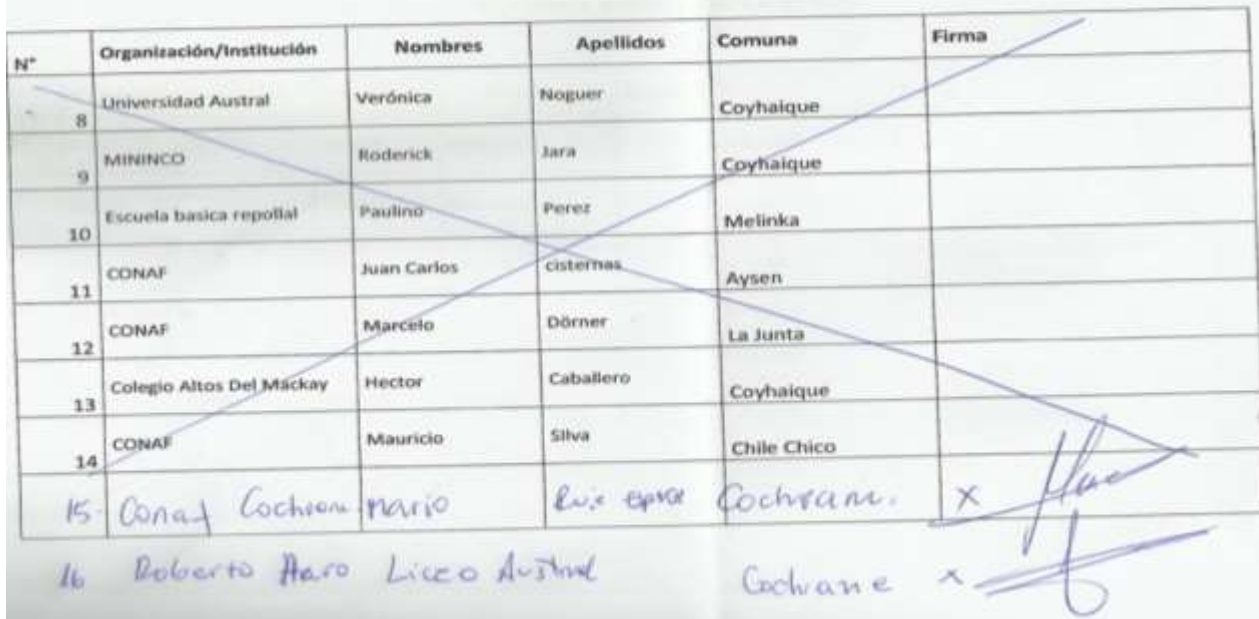 N° Organización/Institución Nombres Apellidos Comuna Firma
8 Universidad Austral Verónica Noguer Coyhaique
9 MININCO Roderick Jara Coyhaique
10 Escuela basica repollal Paulino Perez Melinka
11 CONAF Juan Carlos cisternas Aysen
12 CONAF Marcelo Dörner La Junta
13 Colegio Altos Del Mackay Hector Caballero Coyhaique
14 CONAF Mauricio Silva Chile Chico
15. Conaf Mario Cochrane. x
16 Roberto Haro Liceo Austral Cochrane x